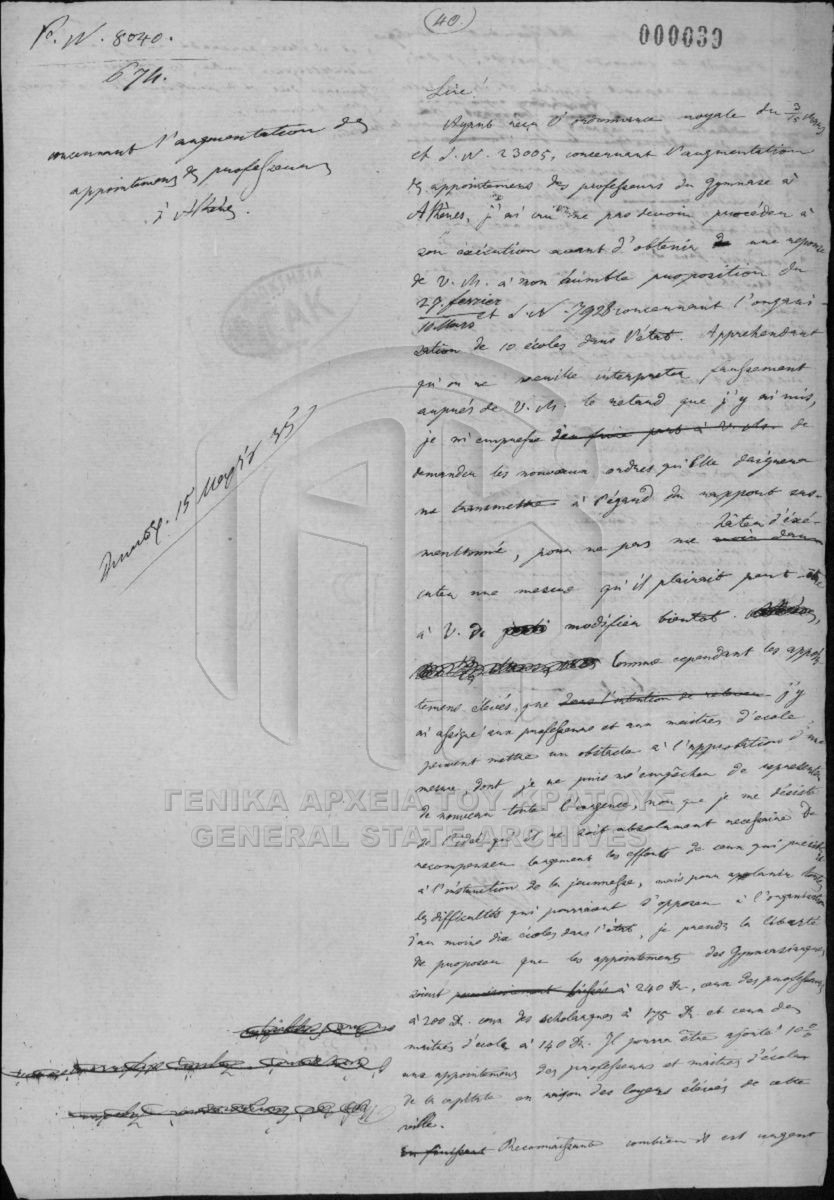 (40.)
000039
P. N. 8040.
674.
concernant l'augmentation des
appointemens des professeurs
à Athènes.
Sire!
Ayant reçu l'ordonnance royale du 3/15 Mars
et S. N. 23005, concernant l'augmentation
des appointemens des professeurs du Gymnase à
Athènes, j'ai cru ne pas devoir procéder à
son exécution avant d'obtenir une reponse
de V. M. à mon humble proposition du
27. fevrier
10. Mars et S. N. 7928 concernant l'organi-
sation de 10 écoles dans l'etat. Apprehendant
qu'on ne veuille interpreter faussement
auprés de V. M. le retard que j'y ai mis,
je m'empresse d'en faire part à V. M. de
demander les nouveaux ordres qu'Elle daignera
me transmettre à l'égard du rapport sus-
mentionné, pour ne pas me hâter d'exé-
cuter une mesure qu'il plairait peut-être
à V. modifier bientot.
Comme cependant les appoin-
temens élevés, que dans l'intention de j'y
ai assigné aux professeurs et aux maitres d'école,
peuvent mettre un obstacle à l'approbation d'une
mesure, dont je ne puis m'empêcher de representer
de nouveau toute l'urgence, non que je me désiste
de l'idée qu'il ne soit absolument necessaire de
recompenser largement les efforts de ceux qui
à l'instruction de la jeunesse, mais pour applanir toutes
les difficultés qui pourraient s'opposer à l'organisation
d'au moins dix écoles dans l'état, je prends la liberté
de proposer que les appointemens des Gymnasiarques
soient à 240 Dr. ceux des professeurs
à 200 Dr. ceux des scholarques à 175 Dr. et ceux des
maitres d'école à 140 Dr. Il pourra être ajouté 10%
aux appointemens des professeurs et maitres d'écoles
de la capitale en raison des loyers élevés de cette
ville.
En finissant Reconnaissant combien il est urgent
15 Μαρτ. 35
ΓΑΚ
ΓΕΝΙΚΑ ΑΡΧΕΙΑ ΤΟΥ ΚΡΑΤΟΥΣ
GENERAL STATE ARCHIVES